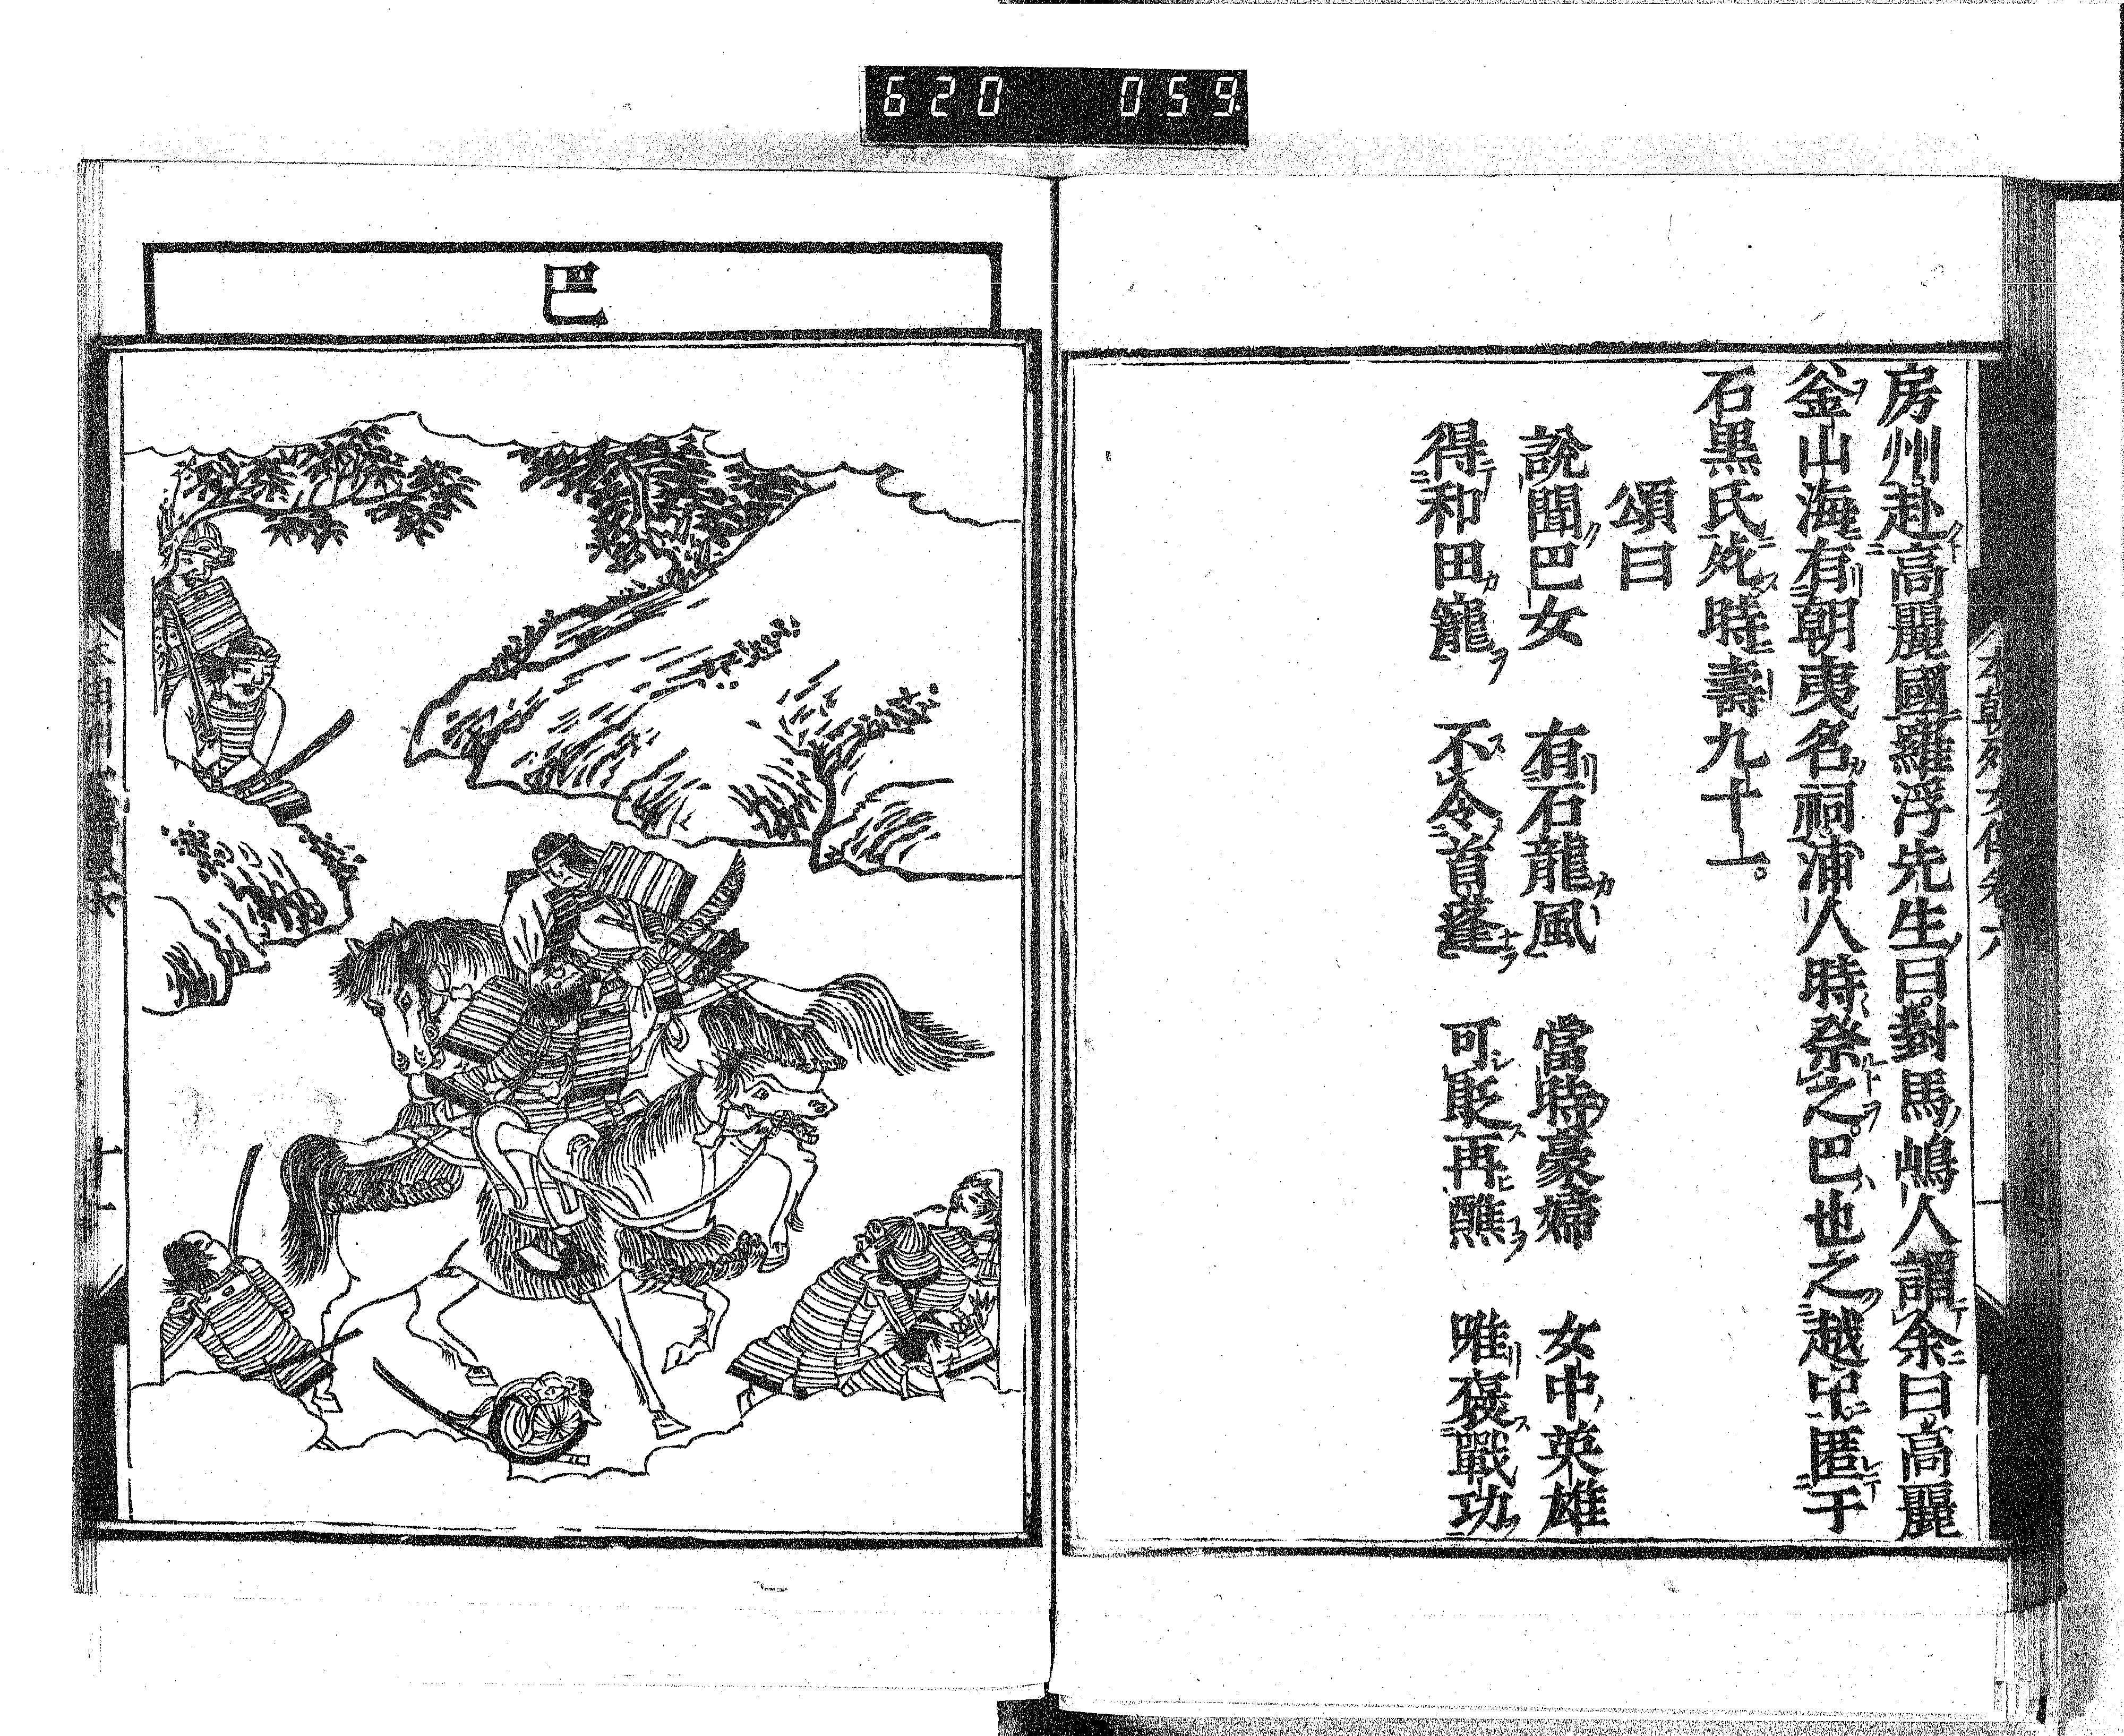 620 059
房州赴高麗國羅浮先生曰對馬嶋人謂余曰高麗
釜山海有朝夷名祠浦人時祭之巴也之越中匿于
石黒氏死時壽九十一。
頌曰
說聞巴女 有石龍風 當時豪婦 女中英雄
得和田寵 不令首蓬 可貶再醮 唯褒戰功
巴